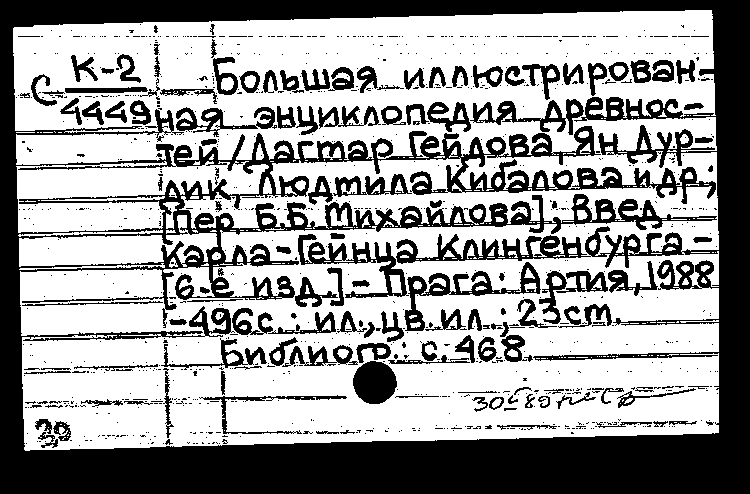 С К-2
4449
Большая иллюстрирован-
ная энциклопедия древнос-
тей/Дагмар Гейдова, Ян Дур-
дик, Людмила Кибалова и др.;
[Пер. Б.Б. Михайлова]; Введ.
Карла-Гейнца Клингенбурга.-
[6-е изд.].- Прага: Артия, 1988
-496с.: ил., цв. ил.; 23ст.
Библиогр.: с. 468.
39